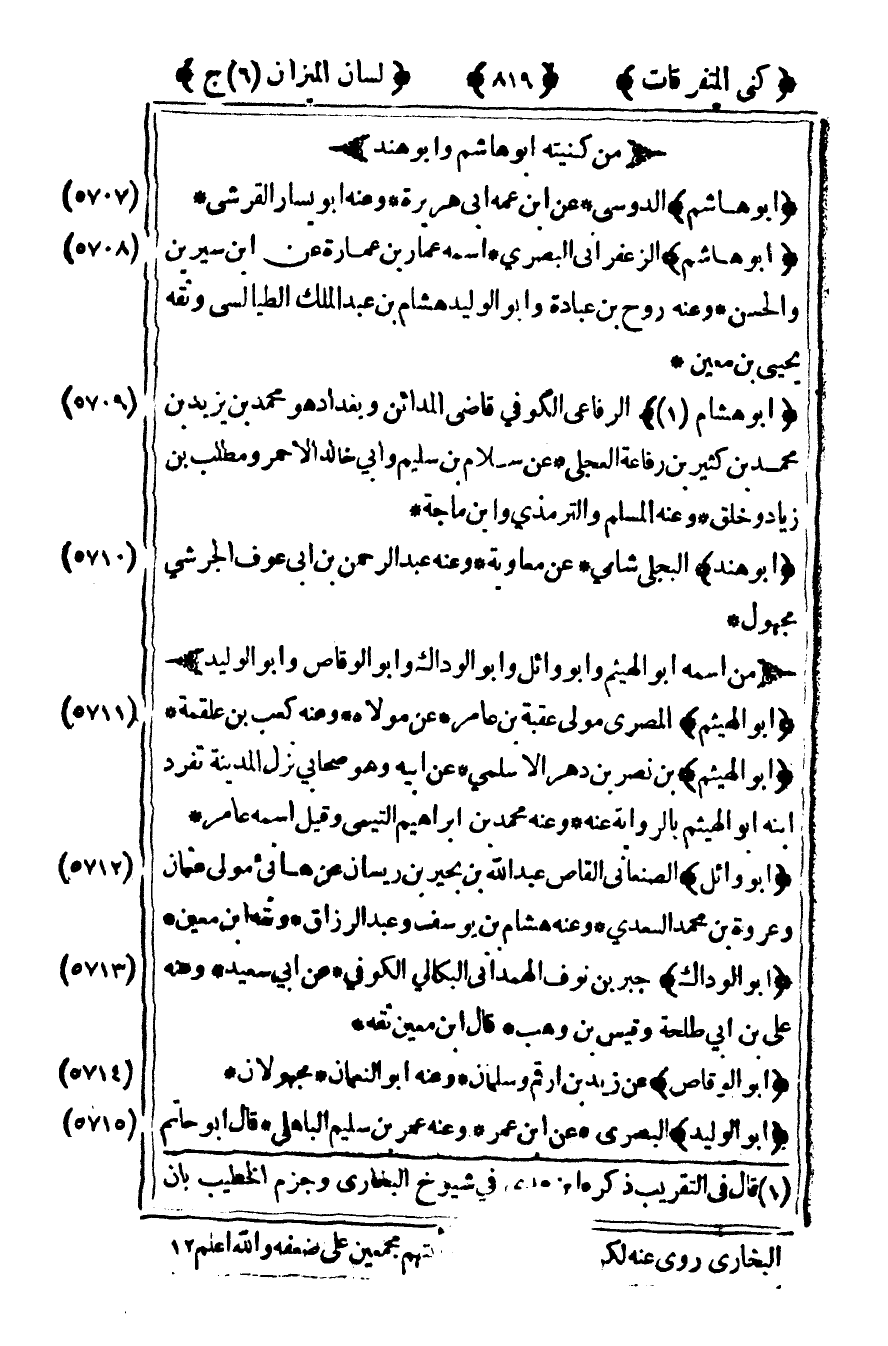 ﴿كنى المتفرقات﴾ ﴿٨١٩﴾ ﴿لسان الميزان (٦) ج﴾
من كنيته ابو هاشم وابو هند
﴿ابو هاشم﴾ الدوسى * عن ابن عمه ابى هريرة * وعنه ابو يسار القرشى * (٥٧٠٧)
﴿ابو هاشم﴾ الزعفرانى البصري * اسمه عمار بن عمارة عن ابن سيرين (٥٧٠٨)
والحسن * وعنه روح بن عبادة وابو الوليد هشام بن عبدالملك الطيالسى وثقه
يحيى بن معين *
﴿ابو هشام (١)﴾ الرفاعى الكوفي قاضى المدائن وبغداد هو محمد بن يزيد بن (٥٧٠٩)
محمد بن كثير بن رفاعة العجلى * عن سلام بن سليم وابي خالد الاحمر ومطلب بن
زياد وخلق * وعنه المسلم والترمذي وابن ماجة *
﴿ابو هند﴾ البجلى شامي * عن معاوية * وعنه عبدالرحمن بن ابى عوف الجرشي (٥٧١٠)
مجهول *
من اسمه ابو الهيثم وابو وائل وابو الوداك وابو الوقاص وابو الوليد
﴿ابو الهيثم﴾ المصرى مولى عقبة بن عامر * عن مولاه * وعنه كعب بن علقمة * (٥٧١١)
﴿ابو الهيثم﴾ بن نصر بن دهر الاسلمي * عن ابيه وهو صحابي نزل المدينة تفرد
ابنه ابو الهيثم بالرواية عنه * وعنه محمد بن ابراهيم التيمى وقيل اسمه عامر *
﴿ابو وائل﴾ الصنعانى القاص عبدالله بن بحير بن ريسان عن هانىء مولى عثمان (٥٧١٢)
وعروة بن محمد السعدي * وعنه هشام بن يوسف وعبدالرزاق * وثقه ابن معين *
﴿ابو الوداك﴾ جبر بن نوف الهمدانى البكالي الكوفي * عن ابي سعيد * وعنه (٥٧١٣)
على بن ابي طلحة وقيس بن وهب * قال ابن معين ثقه *
﴿ابو الوقاص﴾ عن زيد بن ارقم وسلمان * وعنه ابو النعمان * مجهولان * (٥٧١٤)
﴿ابو الوليد﴾ البصرى * عن ابن عمر * وعنه عمر بن سليم الباهلي * قال ابو حاتم (٥٧١٥)
(١) قال فى التقريب ذكره ابن عدى في شيوخ البخارى وجزم الخطيب بان
البخارى روى عنه لكن مجمعين على ضعفه والله اعلم ١٢